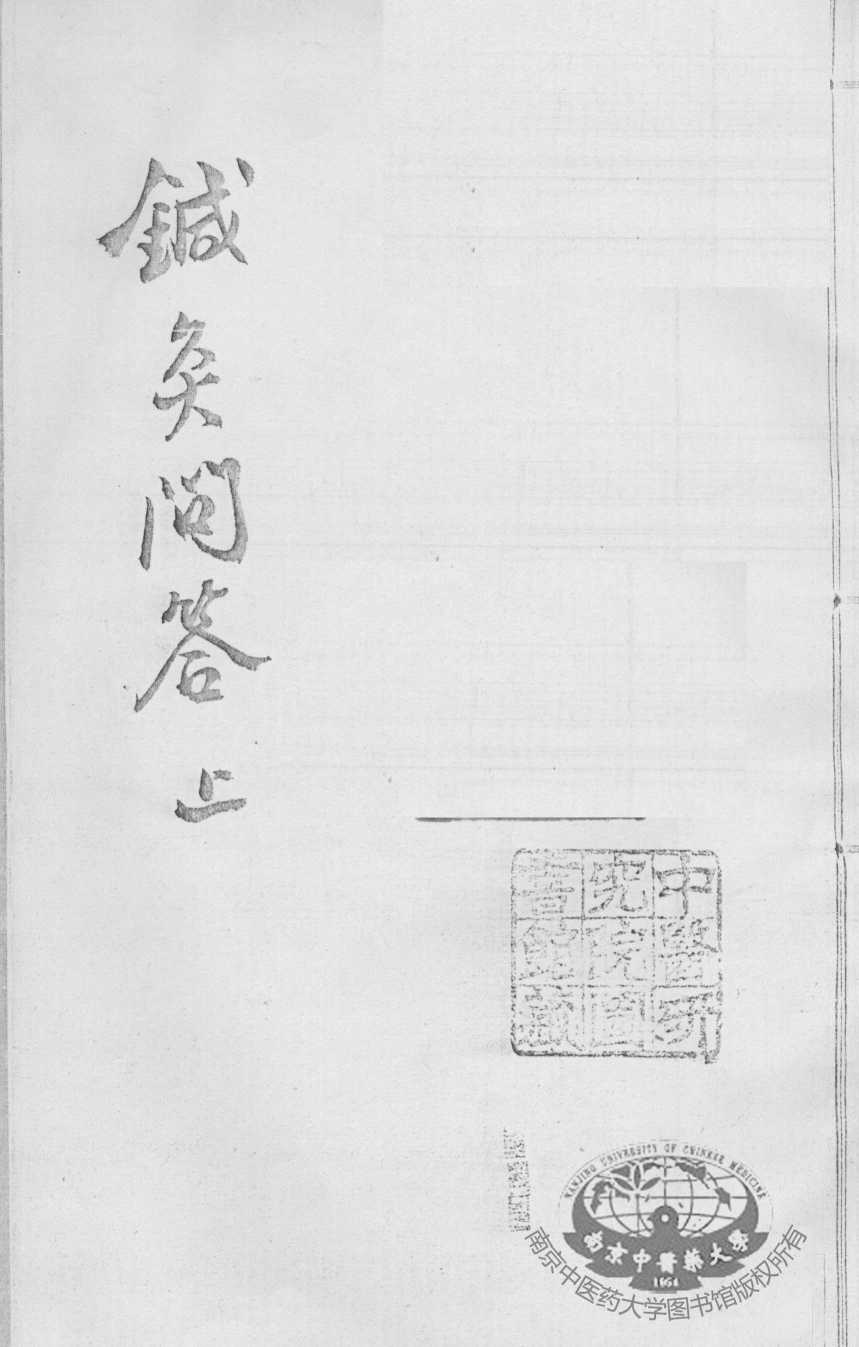 鍼灸問答 上
中醫研
究院圖
書館藏
NANJING UNIVERSITY OF CHINESE MEDICINE
南京中醫藥大學
1954
南京中医药大学图书馆版权所有